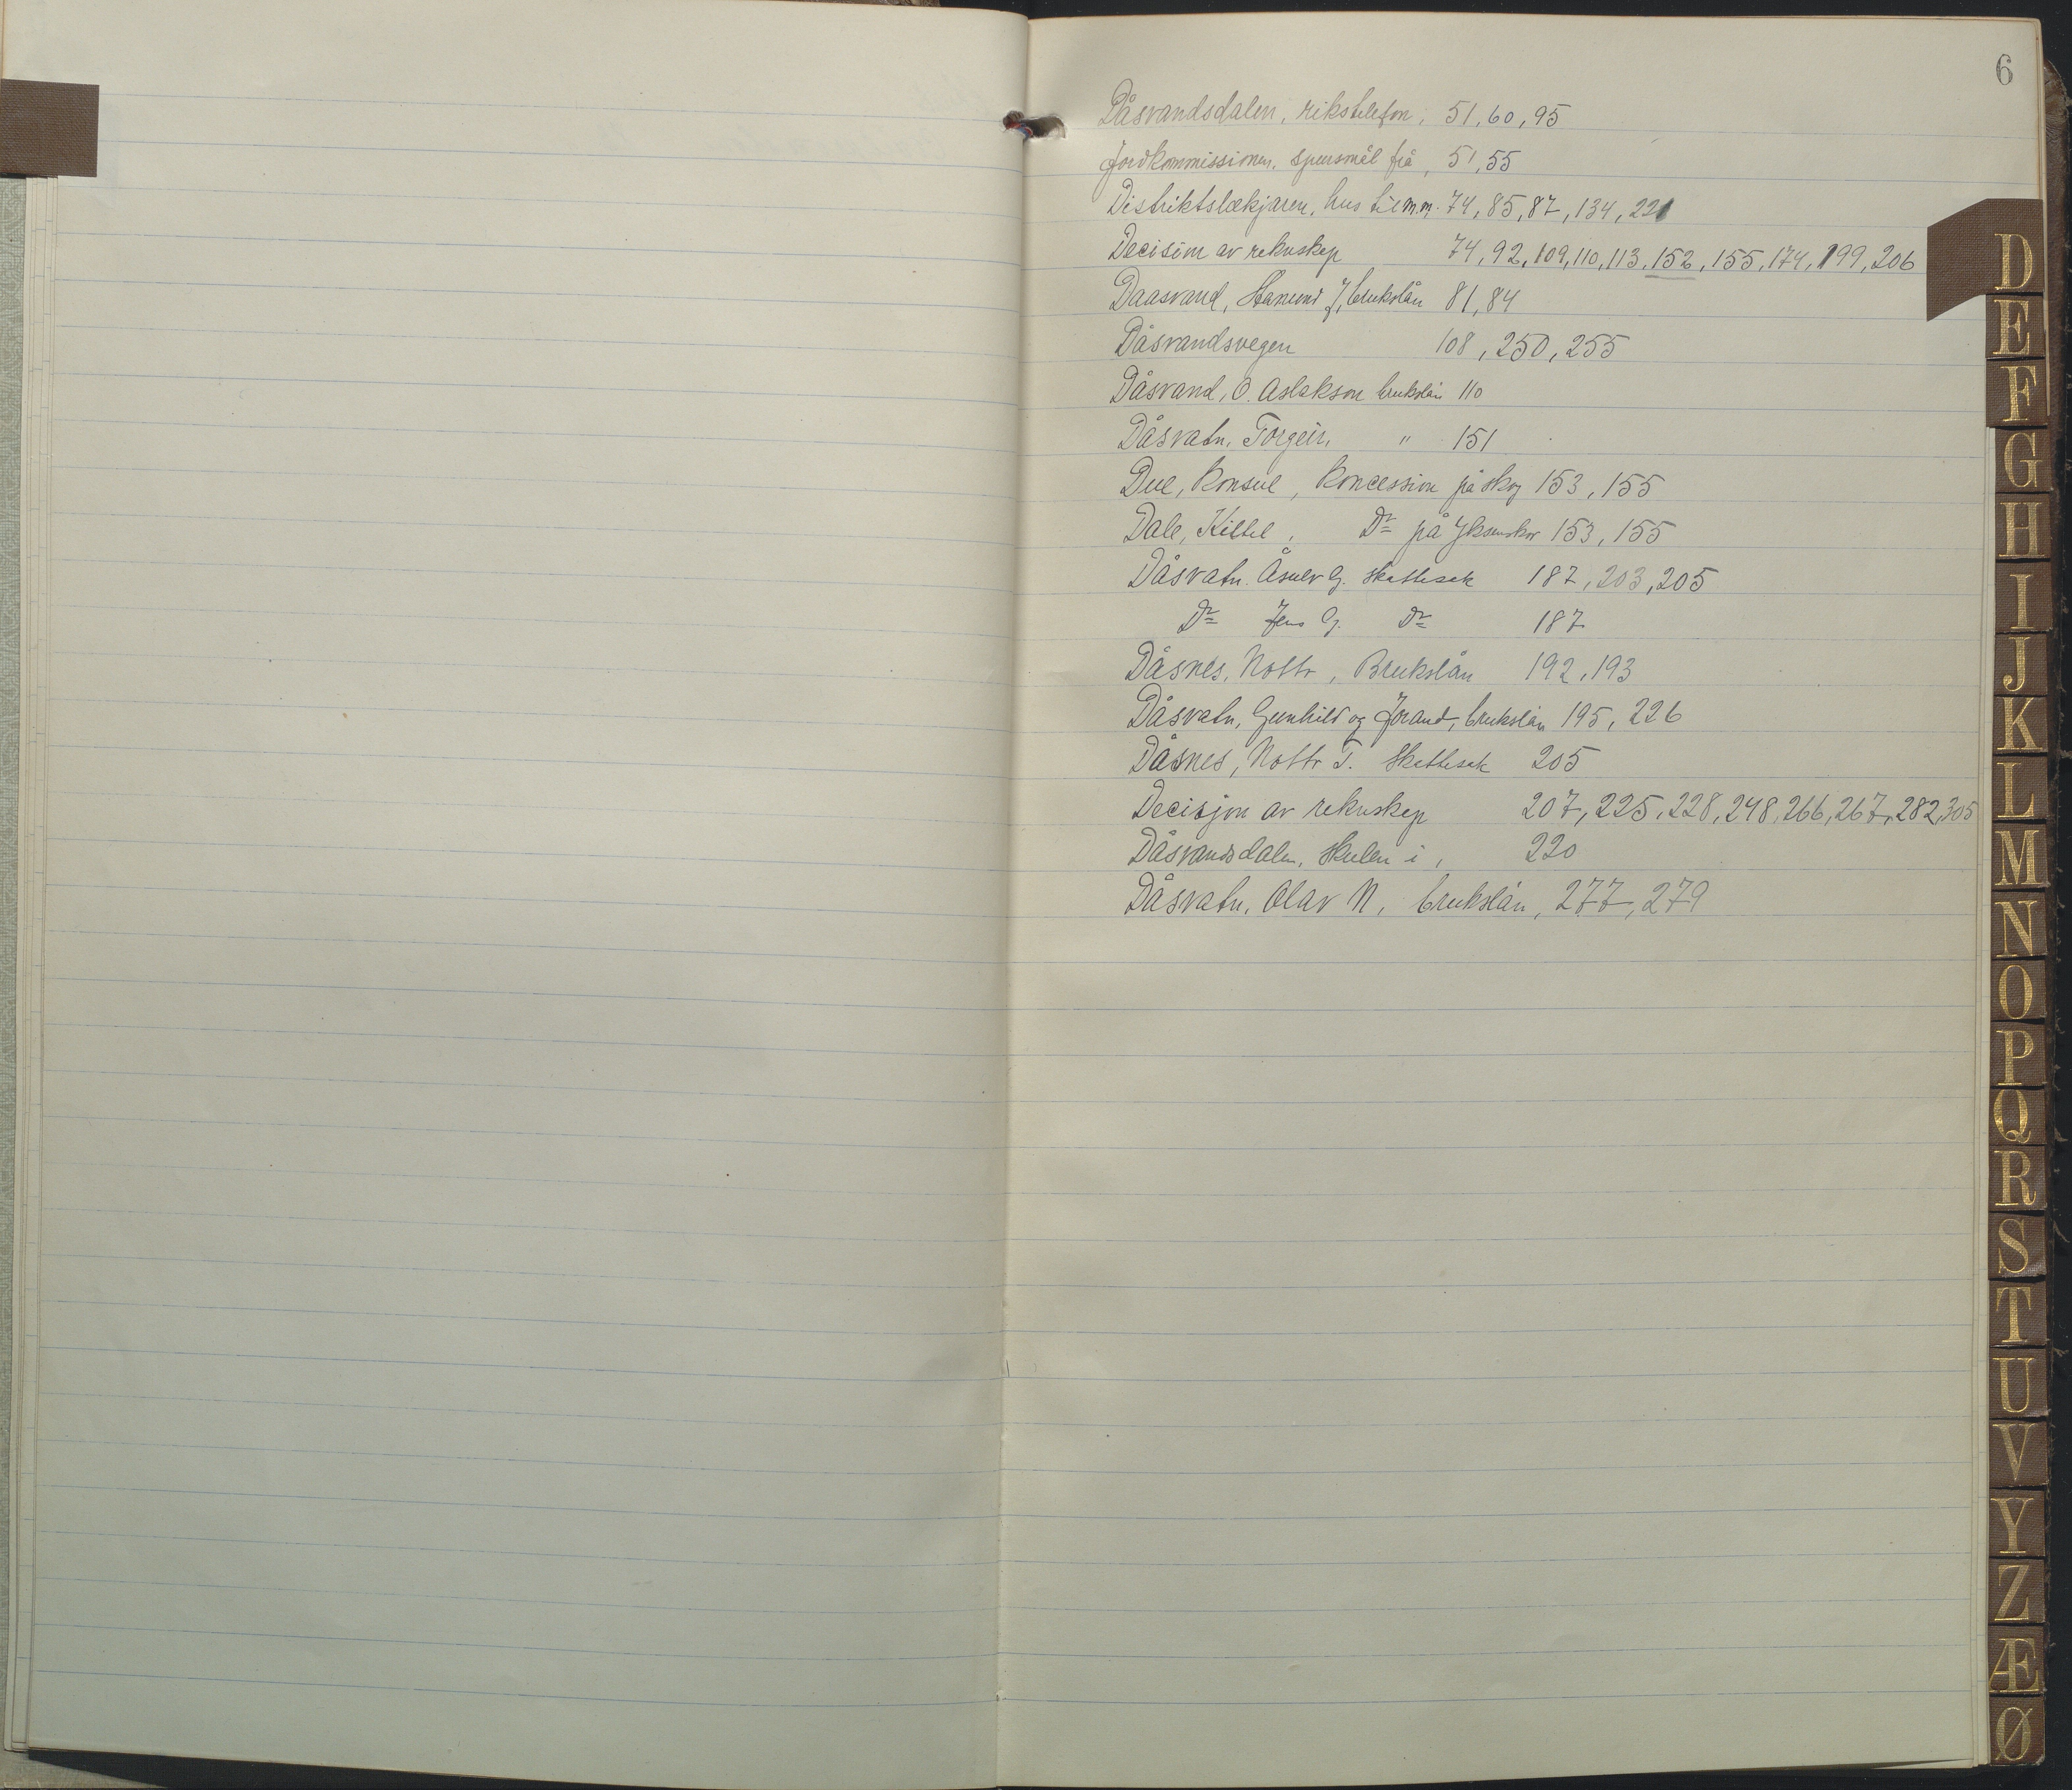 6
Dåsvandsdalen, rikstelefon, 51, 60, 95
Jordkommissionen, spursmål frå, 51, 55
Distriktslækjaren, hus til m.m. 74, 85, 87, 134, 221
Decision av rekneskap 74, 92, 109, 110, 113, 152, 155, 174, 199, 206
Daasvand, Hanund J, brukslån 81, 84
Dåsvandsvegen 108, 250, 255
Dåsvand, O. Aslakson brukslån 110
Dåsvatn, Torgeir, " 151
Due, Konsul, Koncession på skog 153, 155
Dale, Kittel, Do på 153, 155
Dåsvatn. Åsulv G. skattesak 187, 203, 205
Do Jens G. Do 187
Dåsnes, Nottr, Brukslån 192, 193
Dåsvatn, Gunhild og Jorand, brukslån 195, 226
Dåsnes, Nottr T. Skattesak 205
Decisjon av rekneskap 207, 225, 228, 248, 266, 267, 282, 305
Dåsvandsdalen, skulen i, 220
Dåsvatn, Olav N, brukslån, 277, 279
D
E
F
G
H
I
J
K
L
M
N
O
P
Q
R
S
T
U
V
Y
Z
Æ
Ø